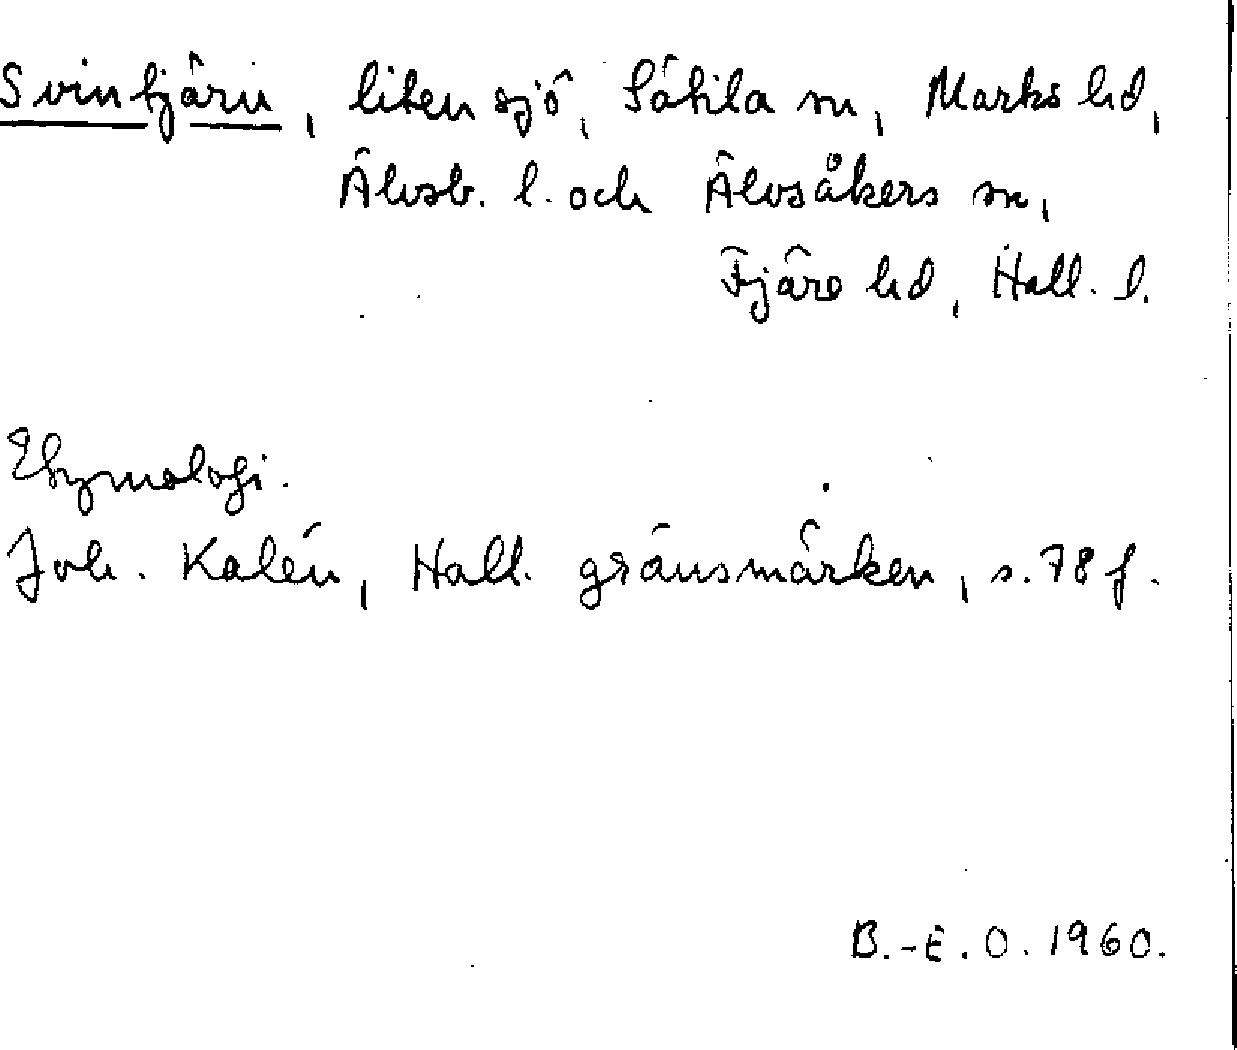 Svintjärn, liten sjö, Sätila sn, Marks hd,
Älvsb. l. och Älvsåkers sn,
Fjäre hd, Hall. l.
Etymologi.
Joh. Kalén, Hall. gränsmärken, s. 78 f.
B.-E. O. 1960.